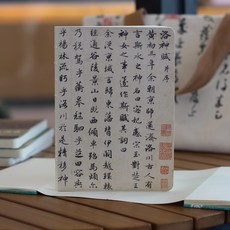 洛神賦 并序
黃初三年余朝京師還濟洛川古人有
言斯水之神名曰宓妃感宋玉對楚王
神女之事遂作斯賦其詞曰
余從京域言歸東藩背伊闕越轘轅
經通谷陵景山日既西傾車殆馬煩爾
乃稅駕乎蘅皋秣駟乎芝田容與
乎楊林流眄乎洛川於是精移神